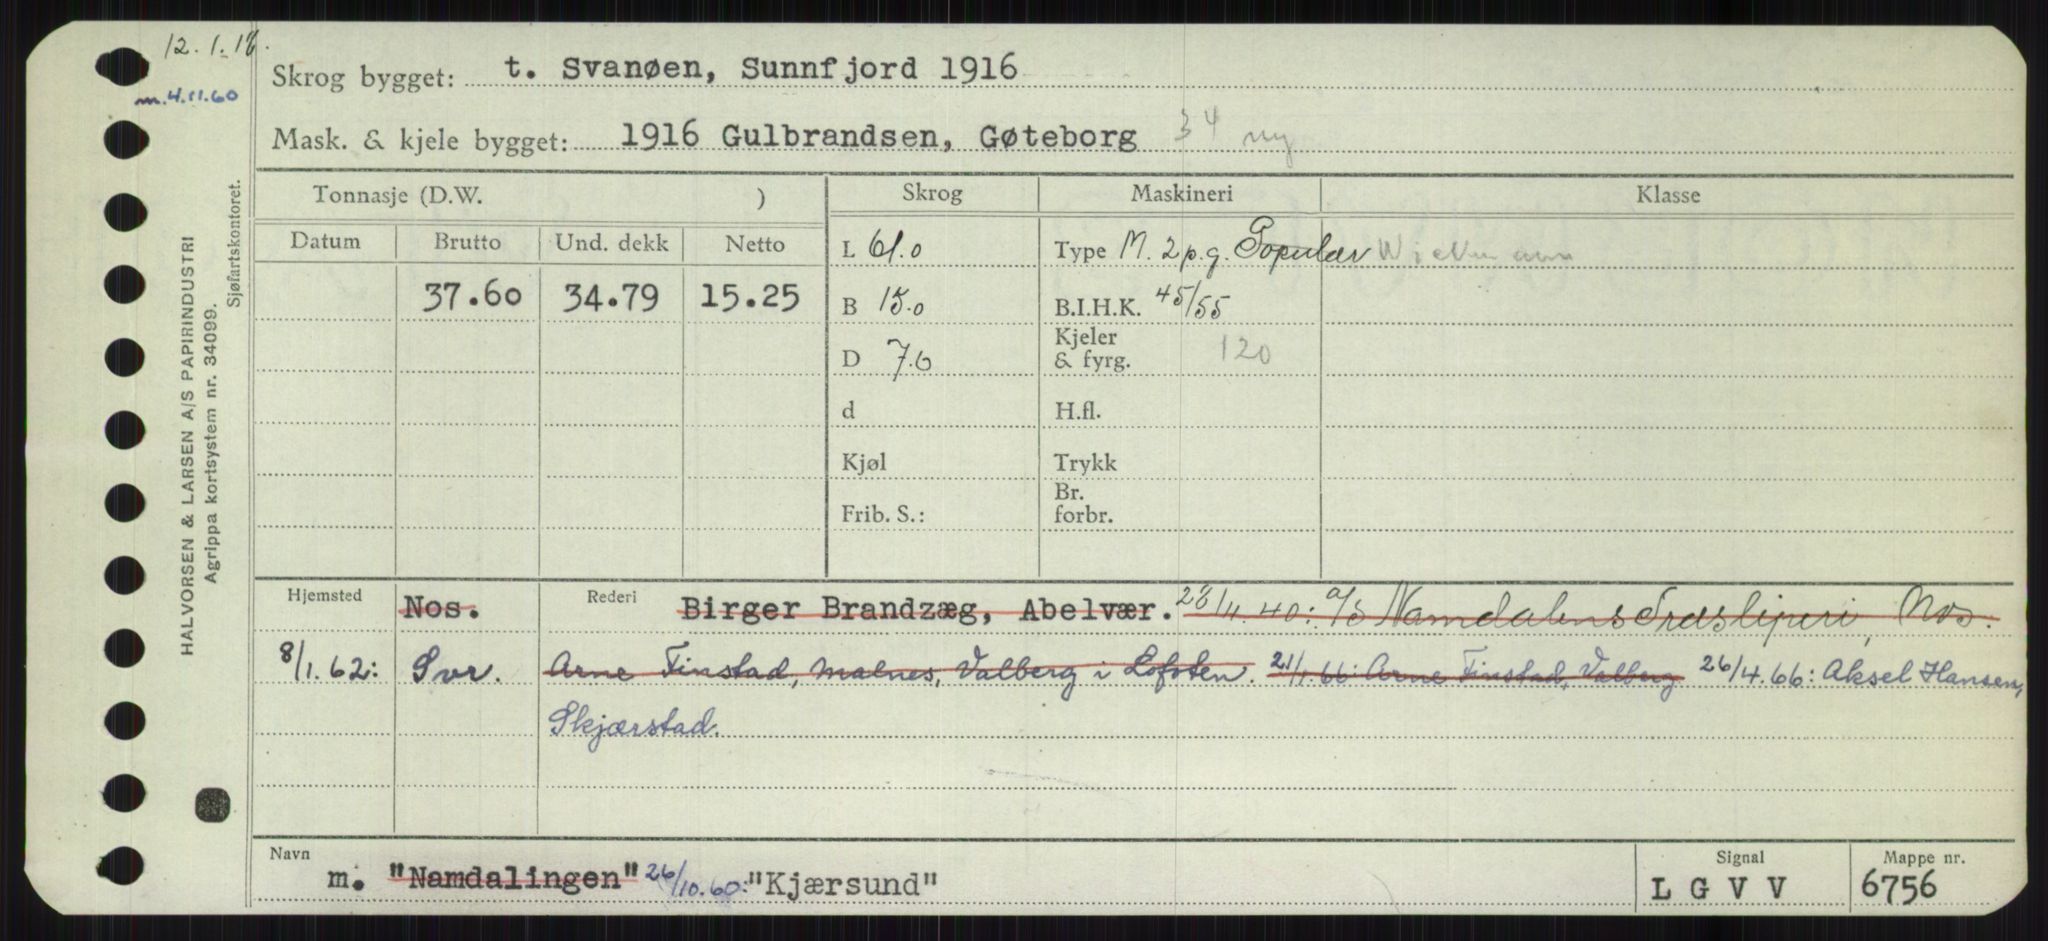 12.1.18.
m.4.11.60
Skrog bygget: t. Svanøen, Sunnfjord 1916
Mask. & kjele bygget: 1916 Gulbrandsen, Gøteborg 34 ny
Tonnasje (D.W. ) Skrog Maskineri Klasse
Datum Brutto Und. dekk Netto
L 61.0 Type M. 2 p.g. Populær
37.60 34.79 15.25
B 15.0 B.I.H.K. 45/55
Kjeler
D 7.6 & fyrg. 120
d H.fl.
Kjøl Trykk
Br.
Frib. S.: forbr.
Hjemsted Nos. Rederi Birger Brandzæg, Abelvær. 28/4.40: a/s Namdalens Træsliperi, Nos.
8/1.62: Svr. Arne Finstad, Malnes, Valberg i Lofoten. 21/1.66: Arne Finstad, Valberg 26/4.66: Aksel Hansen,
Skjærstad.
Navn Signal Mappe nr.
m. "Namdalingen" 26/10.60: "Kjærsund" L G V V 6756
HALVORSEN & LARSEN A/S PAPIRINDUSTRI
Agrippa kortsystem nr. 34099.
Sjøfartskontoret.